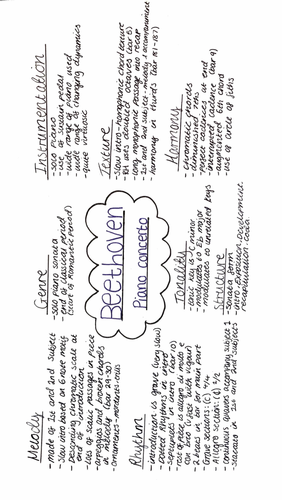 Melody
- made of 1st and 2nd subject
- slow intro based on 6-note motif
- descending chromatic scale at end of introduction
- lots of scalic passages in piece
- arpeggios and broken chords in melody (bar 29-30)
- ornaments - mordents - trills
Genre
- solo piano sonata
- end of classical period
(start of Romantic period)
Instrumentation
- solo piano
- use of sustain pedal
- wide range of piano used
- wide range of changing dynamics
- quite virtuosic
Beethoven
Piano concerto
Texture
- slow intro - homophonic chord texture
- RH uses doubled octaves (bar 5)
- long monophonic passage into recap
- 1st and 2nd subject - melody + accompaniment
- harmony in thirds (bar 181-187)
Rhythm
- introduction is grave (very slow)
- dotted rhythms in intro
- septuplets in intro (bar 10)
- rest of piece is allegro di molto e con brio
- 2 beats in bar for main part
- Grave sections: (C) 4/4
- Allegro section: (¢) 2/2
- continuous quavers accompany subject 1
- staccato in 1st and 2nd subjects
Tonality
- tonic key is C minor
- modulates to Eb major
- modulates to unrelated keys
Structure
- sonata form
- intro - exposition - development
recapitulation - coda
Harmony
- chromatic chords
- diminished 7ths
- perfect cadences at end
- interrupted cadence (bar 9)
- augmented 6th chord
- use of circle of fifths